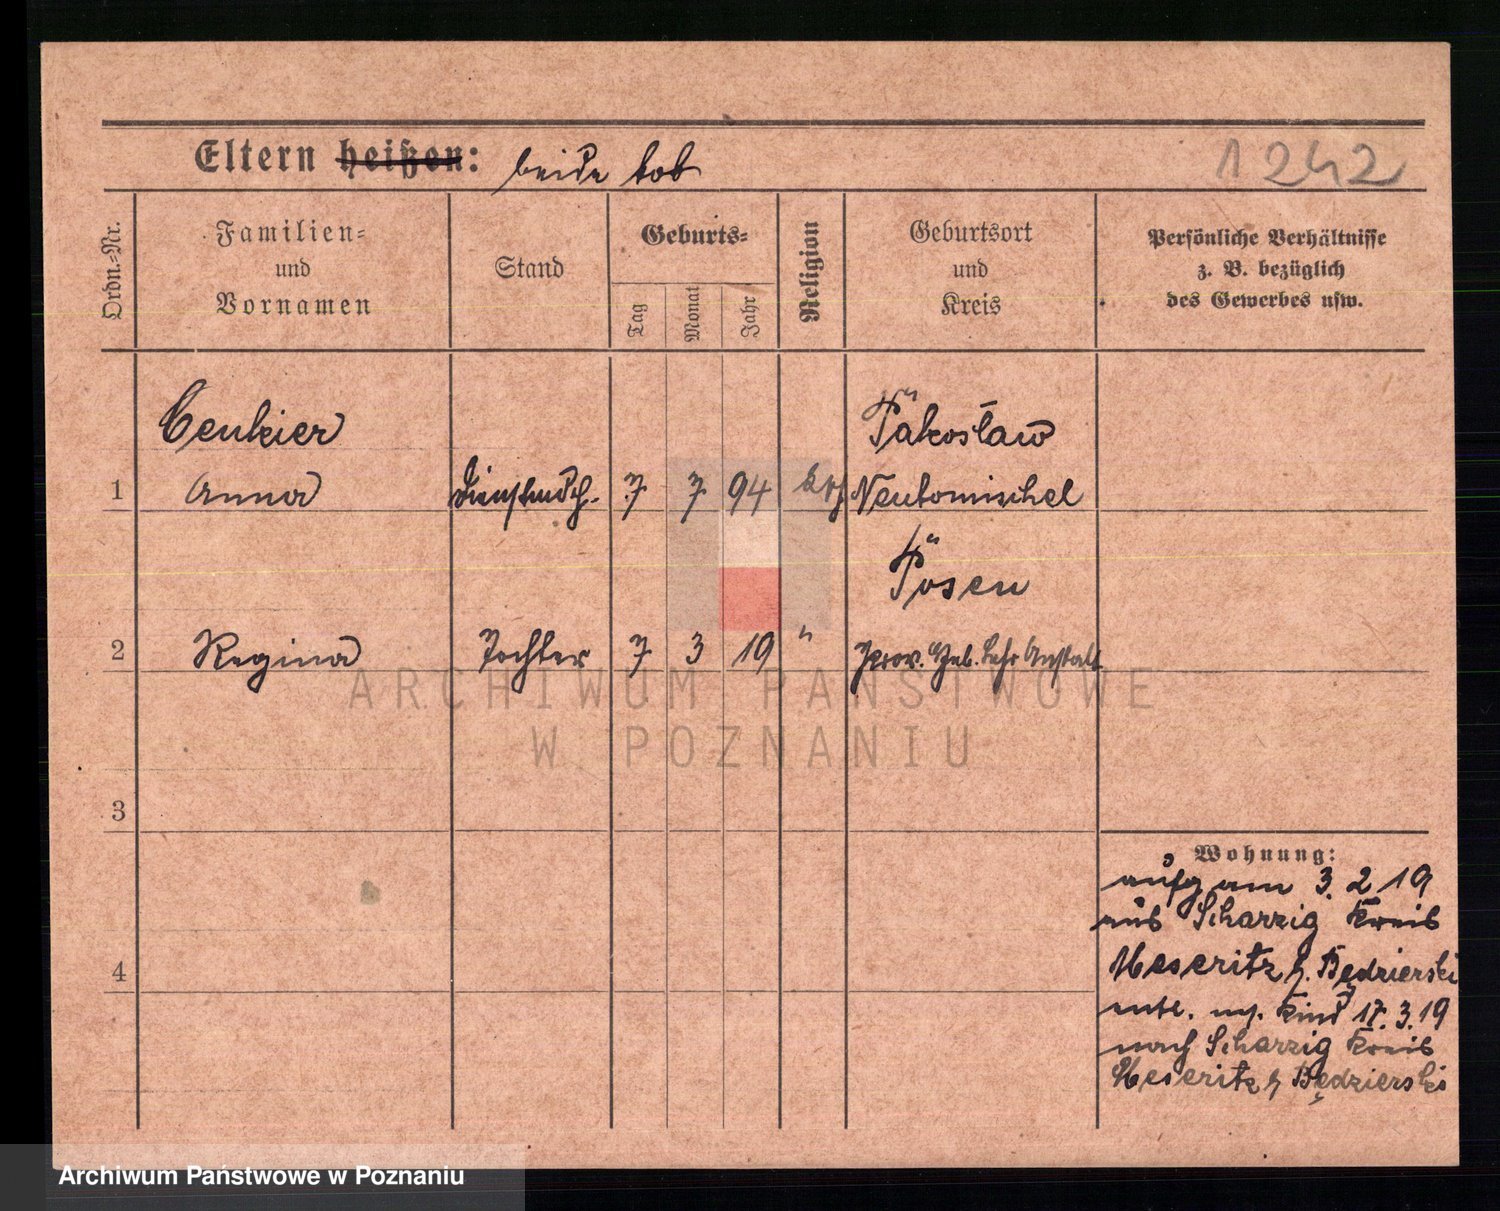 Eltern heißen: beide tot
1242
Ordn.-Nr.
Familien-
und
Vornamen
Stand
Geburts-
Tag
Monat
Jahr
Religion
Geburtsort
und
Kreis
Persönliche Verhältnisse
z. B. bezüglich
des Gewerbes usw.
Cenkier
Pakosław
1 Anna Dienstmdch. 7 7 94 kth Neutomischel
Posen
2 Regina Tochter 7 3 19 " Prov. Heb. Lehr Anstalt
3
4
Wohnung:
aufg am 3. 2 19
aus Scharzig Kreis
Meseritz b. Będzierski
entl. m. Kind 17. 3. 19
nach Scharzig Kreis
Meseritz b Będzierski
ARCHIWUM PAŃSTWOWE
W POZNANIU
Archiwum Państwowe w Poznaniu